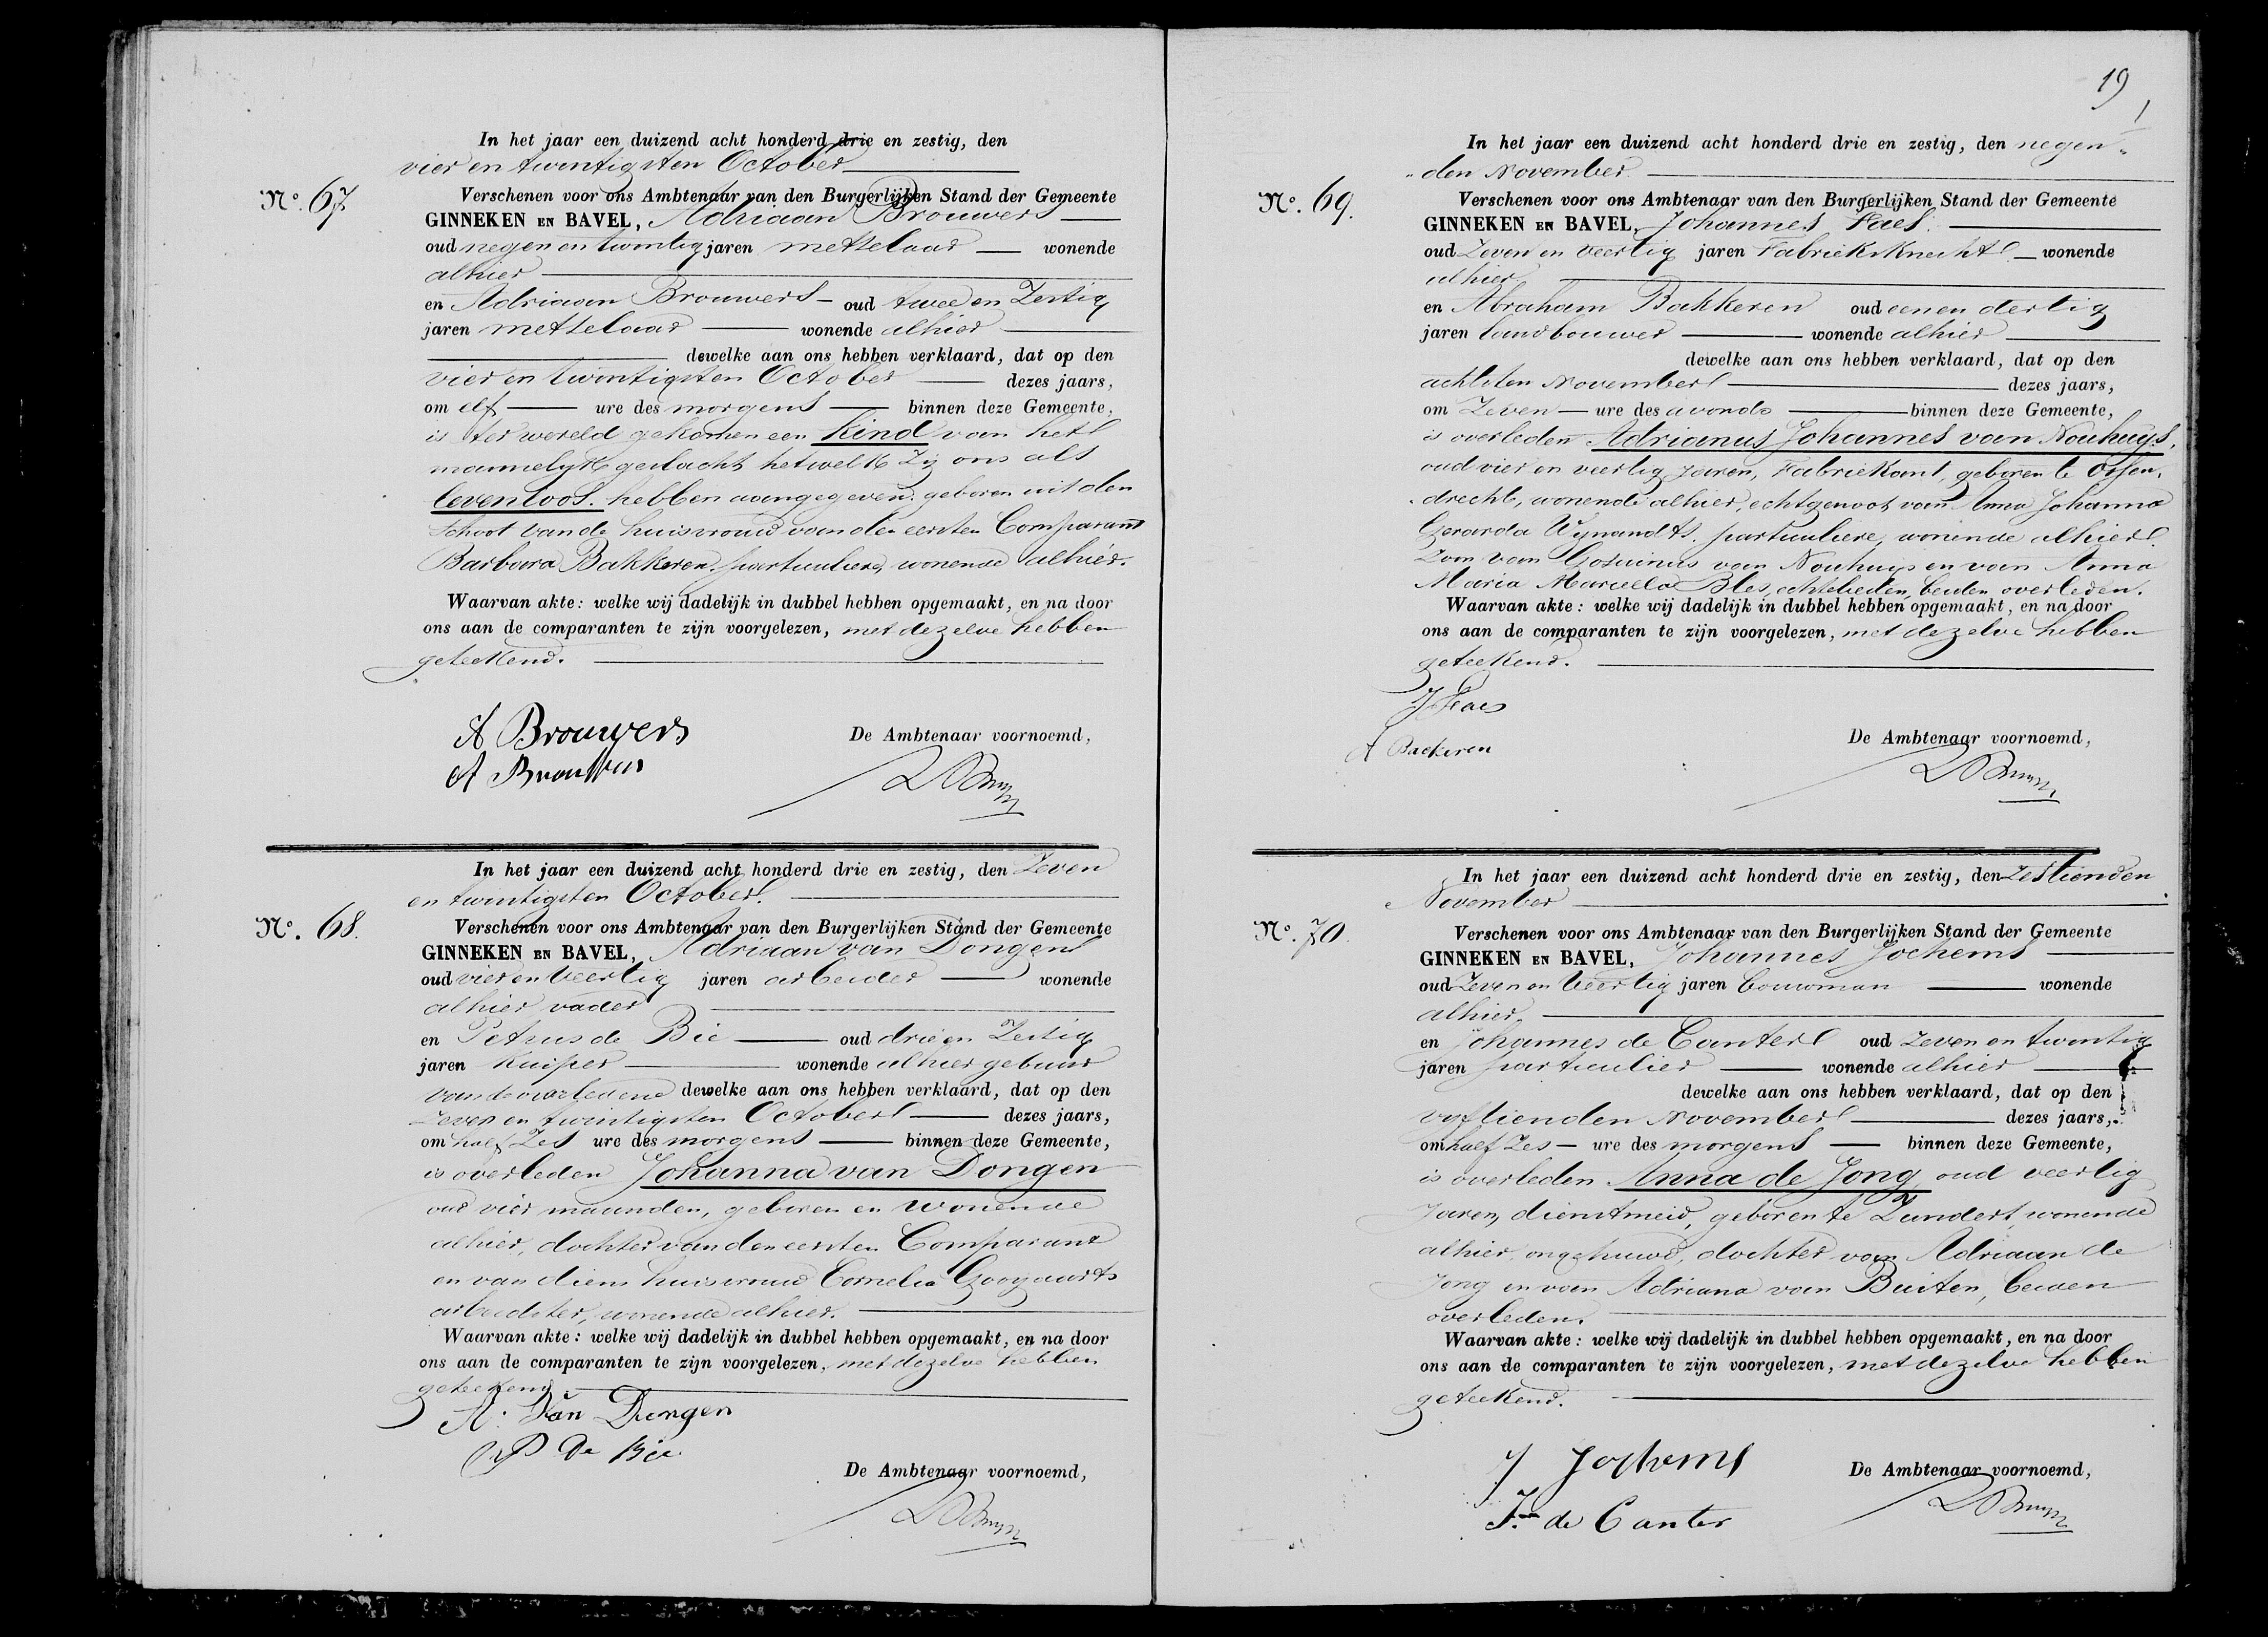 In het jaar een duizend acht honderd drie en zestig, den
vier en twintigsten October
No. 67.
Verschenen voor ons Ambtenaar van den Burgerlijken Stand der Gemeente
GINNEKEN EN BAVEL, Adriaan Brouwers
oud negen en twintig jaren metselaar wonende
alhier
en Adriaan Brouwers oud twee en Zestig
jaren metselaar wonende alhier
dewelke aan ons hebben verklaard, dat op den
vier en twintigsten October dezes jaars,
om elf ure des morgens binnen deze Gemeente,
is ter wereld gekomen een kind van het
mannelyk geslacht hetwelk Zy ons als
levenloos. hebben aangegeven. geboren uit den
schoot van de huisvrouw van den eersten Comparant
Barbara Bakkeren. particuliere, wonende alhier.
Waarvan akte: welke wij dadelijk in dubbel hebben opgemaakt, en na door
ons aan de comparanten te zijn voorgelezen, met dezelve hebben
geteekend.
A Brouwers
A Brouwers
De Ambtenaar voornoemd,
In het jaar een duizend acht honderd drie en zestig, den Zeven
en twintigsten October.
No. 68.
Verschenen voor ons Ambtenaar van den Burgerlijken Stand der Gemeente
GINNEKEN EN BAVEL, Adriaan van Dongen
oud vier en veertig jaren arbeider wonende
alhier vader
en Petrus de Bie oud drie en Zestig
jaren Kuiper wonende alhier gebuur
van de overledene dewelke aan ons hebben verklaard, dat op den
Zeven en twintigsten October dezes jaars,
om half Zes ure des morgens binnen deze Gemeente,
is overleden Johanna van Dongen
oud vier maanden, geboren en wonende
alhier, dochter van den eersten Comparant
en van diens huisvrouw Cornelia Googaarts
arbeidster, wonende alhier.
Waarvan akte: welke wij dadelijk in dubbel hebben opgemaakt, en na door
ons aan de comparanten te zijn voorgelezen, met dezelve hebben
geteekend.
A. Van Dongen
P De Bie
De Ambtenaar voornoemd,
19
In het jaar een duizend acht honderd drie en zestig, den negen„
„den November
No. 69.
Verschenen voor ons Ambtenaar van den Burgerlijken Stand der Gemeente
GINNEKEN EN BAVEL, Johannes Faes.
oud Zeven en veertig jaren Fabrieksknecht wonende
alhier
en Abraham Bakkeren oud een en dertig
jaren landbouwer wonende alhier
dewelke aan ons hebben verklaard, dat op den
achtsten November dezes jaars,
om Zeven ure des avonds binnen deze Gemeente,
is overleden Adrianus Johannes van Nouhuys,
oud vier en veertig jaren, Fabriekant, geboren te Ossen„
„drecht, wonende alhier, echtgenoot van Anna Johanna
Gerarda Wynandts. particuliere, wonende alhier.
Zoon van Gosuinus van Nouhuys en van Anna
Maria Marcella Bles, echtelieden, beiden overleden.
Waarvan akte: welke wij dadelijk in dubbel hebben opgemaakt, en na door
ons aan de comparanten te zijn voorgelezen, met dezelve hebben
geteekend.
J Faes
A Backeren
De Ambtenaar voornoemd,
In het jaar een duizend acht honderd drie en zestig, den Zestienden
November
No. 70.
Verschenen voor ons Ambtenaar van den Burgerlijken Stand der Gemeente
GINNEKEN EN BAVEL, Johannes Jochems
oud Zeven en veertig jaren bouwman wonende
alhier.
en Johannes de Canter oud Zeven en twintig
jaren particulier wonende alhier
dewelke aan ons hebben verklaard, dat op den
vyftienden November dezes jaars,
om half Zes ure des morgens binnen deze Gemeente,
is overleden Anna de Jong, oud veertig
Jaren, dienstmeid, geboren te Zundert, wonende
alhier, ongehuwd, dochter van Adriaan de
Jong en van Adriana van Buiten, beiden
overleden.
Waarvan akte: welke wij dadelijk in dubbel hebben opgemaakt, en na door
ons aan de comparanten te zijn voorgelezen, met dezelve hebben
geteekend.
J Jochems
Jn de Canter
De Ambtenaar voornoemd,